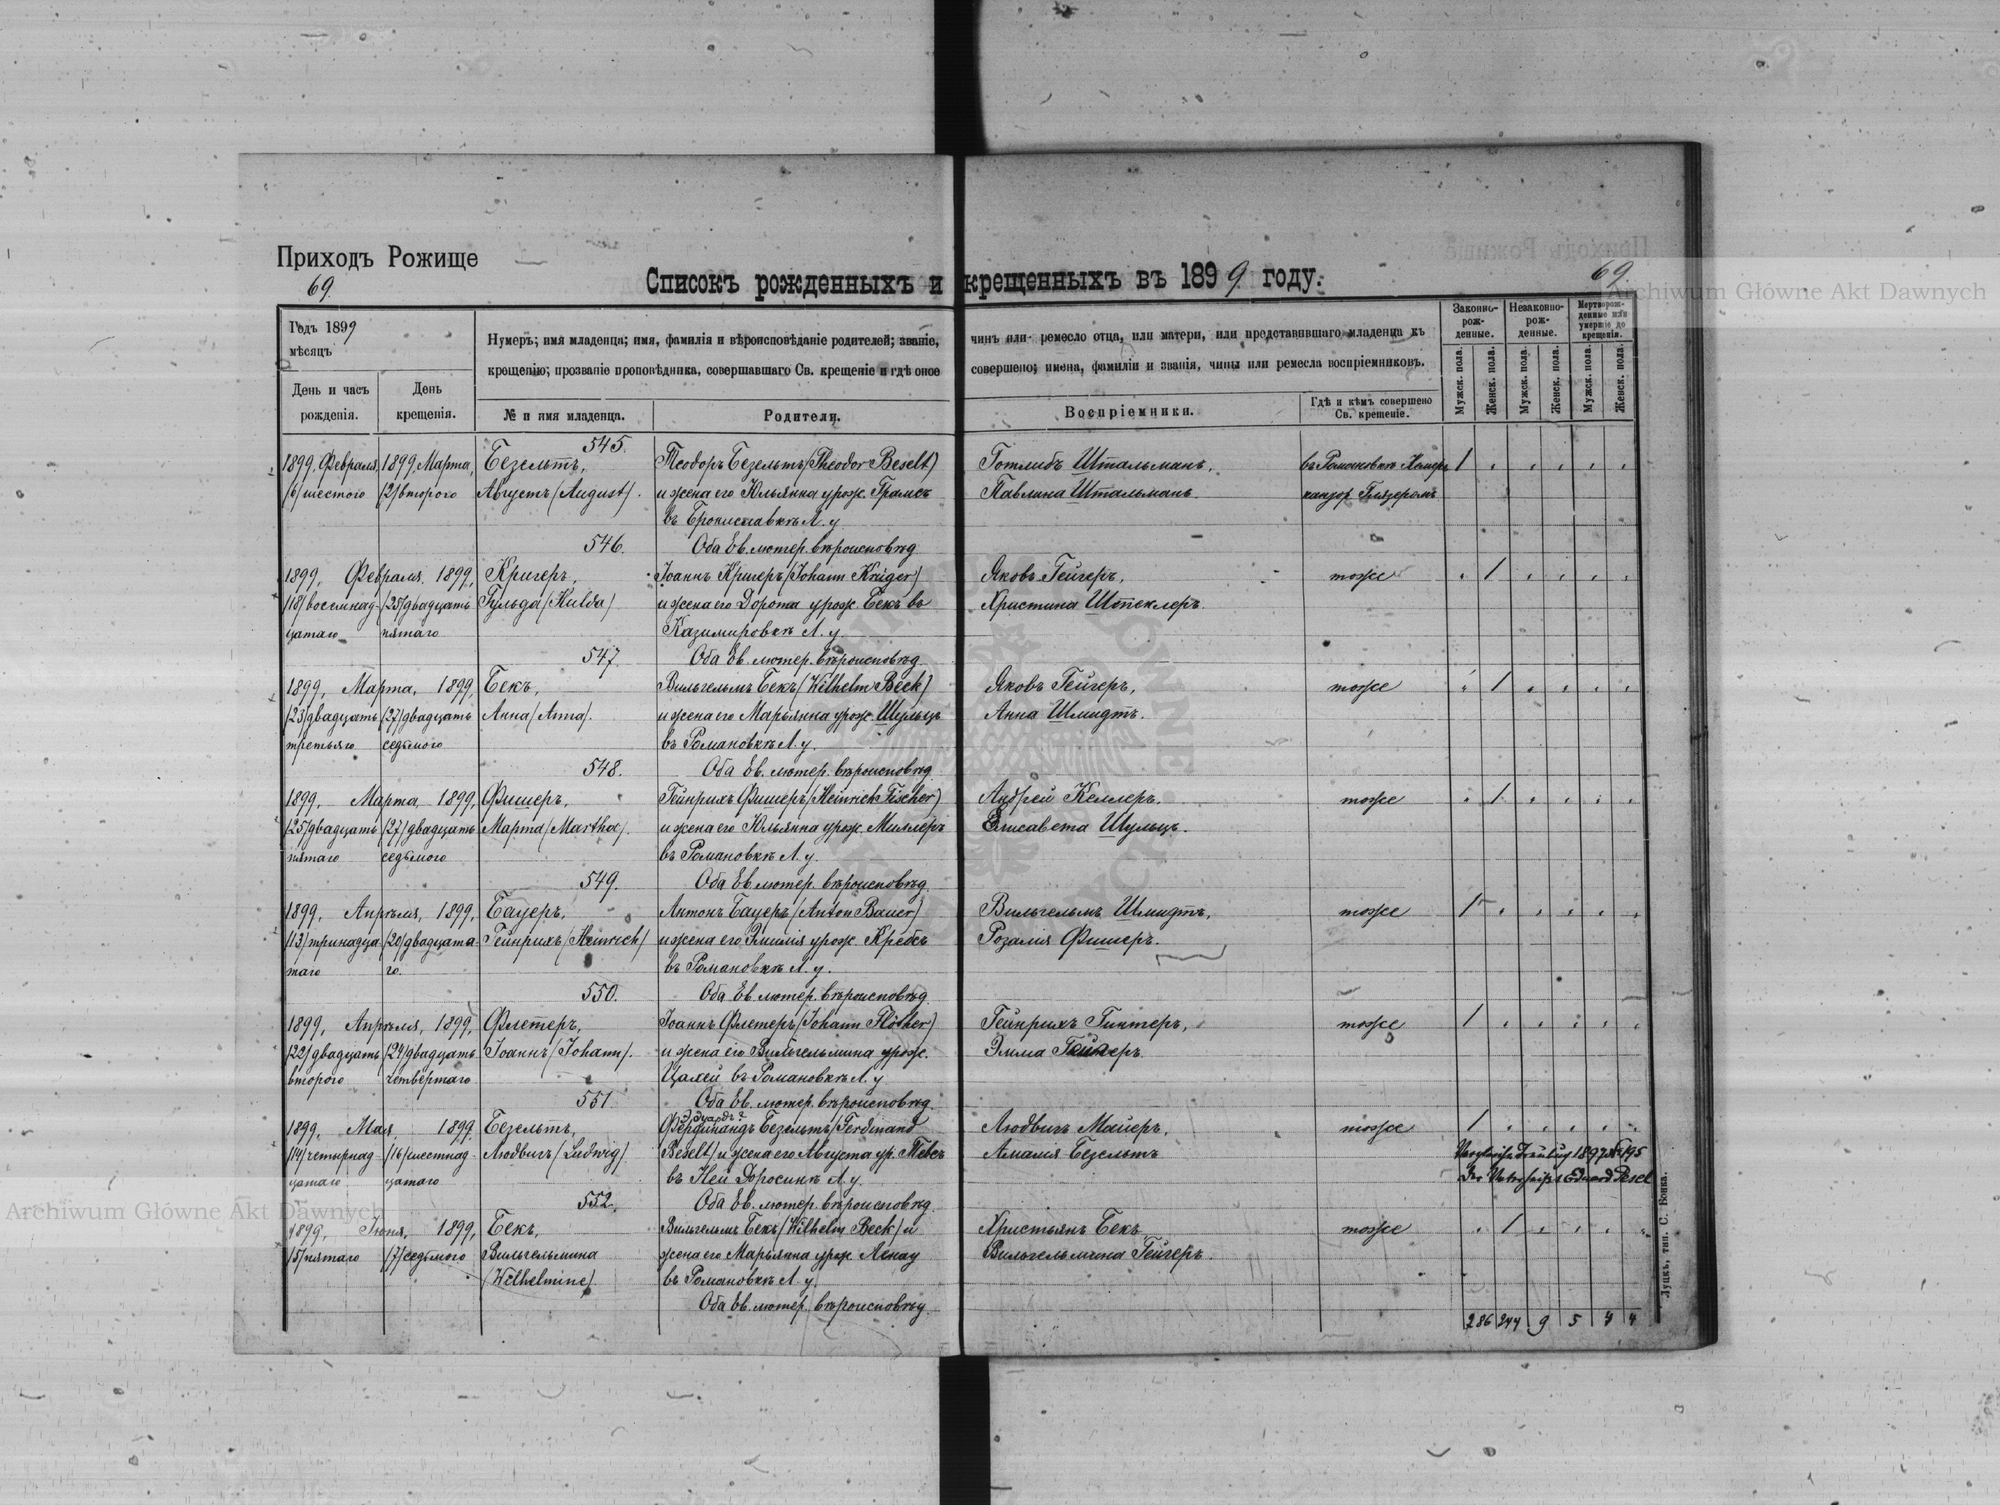 Приходъ Рожище
69.
69.
Списокъ рожденныхъ и крещенныхъ въ 1899 году.
Archiwum Główne Akt Dawnych
Годъ 1899
мѣсяцъ
День и часъ рожденія.
День крещенія.
Нумеръ; имя младенца; имя, фамилія и вѣроисповѣданіе родителей; званіе, чинъ или ремесло отца, или матери, или представившаго младенца къ
крещенію; прозваніе проповѣдника, совершавшаго Св. крещеніе и гдѣ оное совершено; имена, фамиліи и званія, чины или ремесла воспріемниковъ.
№ и имя младенца.
Родители.
Воспріемники.
Гдѣ и кѣмъ совершено Св. крещеніе.
Законно-рож-денные.
Незаконно-рож-денные.
Мертворож-денные или умершіе до крещенія.
Мужск. пола.
Женск. пола.
Мужск. пола.
Женск. пола.
Мужск. пола.
Женск. пола.
545.
1899, Февраля, 1899, Марта, Безельтъ, Теодоръ Безельтъ /Theodor Beselt/ Готлибъ Штальманъ, въ Романовкѣ 1
/6/ шестого /2/ второго Августъ /August/. и жена его Юльянна урож. Грамсъ Павлина Штальманъ. кантор. Глязеромъ
въ Брониславкѣ Л. у.
546. Оба Ев. лютер. вѣроисповѣд.
1899, Февраля, 1899, Кригеръ, Іоаннъ Кригеръ /Johann Krüger/ Яковъ Гейгеръ, тоже 1
/18/ восемнад- /25/ двадцать Гульда /Hulda/ и жена его Дорота урож. Бекъ въ Христина Штеклеръ.
цатаго пятаго Казимировкѣ Л. у.
547. Оба Ев. лютер. вѣроисповѣд.
1899, Марта, 1899, Бекъ, Вильгельмъ Бекъ /Wilhelm Beck/ Яковъ Гейгеръ, тоже 1
/23/ двадцать /27/ двадцать Анна /Anna/. и жена его Марьянна урож. Шульцъ Анна Шмидтъ.
третьяго седьмого въ Романовкѣ Л. у.
548. Оба Ев. лютер. вѣроисповѣд.
1899, Марта, 1899, Фишеръ, Гейнрихъ Фишеръ /Heinrich Fischer/ Андрей Келлеръ, тоже 1
/25/ двадцать /27/ двадцать Марта /Martha/. и жена его Юльянна урож. Миллеръ Елисавета Шульцъ.
пятаго седьмого въ Романовкѣ Л. у.
549. Оба Ев. лютер. вѣроисповѣд.
1899, Апрѣля, 1899, Бауеръ, Антонъ Бауеръ /Anton Bauer/ Вильгельмъ Шмидтъ, тоже 1
/13/ тринадца- /20/ двадцата- Гейнрихъ /Heinrich/ и жена его Эмилія урож. Кребсъ Розалія Фишеръ.
таго го. въ Романовкѣ Л. у.
550. Оба Ев. лютер. вѣроисповѣд.
1899, Апрѣля, 1899, Флетеръ, Іоаннъ Флетеръ /Johann Flöther/ Гейнрихъ Гинтеръ, тоже 1
/22/ двадцать /24/ двадцать Іоаннъ /Johann/. и жена его Вильгельмина урож. Эмма
второго четвертаго въ Романовкѣ Л. у.
551. Оба Ев. лютер. вѣроисповѣд.
Эдуардъ?
1899, Мая, 1899, Безельтъ, Фердинандъ Безельтъ /Ferdinand Людвигъ Майеръ, тоже 1
/14/ четырнад- /16/ шестнад- Людвигъ /Ludwig/. Beselt/ и жена его Августа ур. Тевсъ Амалія Безельтъ 1897 № 195
цатаго цатаго въ Ней Доросинѣ Л. у. Eduard Pesel
552. Оба Ев. лютер. вѣроисповѣд.
1899, Іюня, 1899, Бекъ, Вильгельмъ Бекъ /Wilhelm Beck/ и Христьянъ Бекъ, тоже 1
/5/ пятаго /7/ седьмого Вильгельмина жена его Марьянна урож. Ленау Вильгельмина Гейгеръ.
/Wilhelmine/. въ Романовкѣ Л. у.
Оба Ев. лютер. вѣроисповѣд.
286 244 9 5 4 4
Луцкъ, тип. С. Бонка.
Archiwum Główne Akt Dawnych